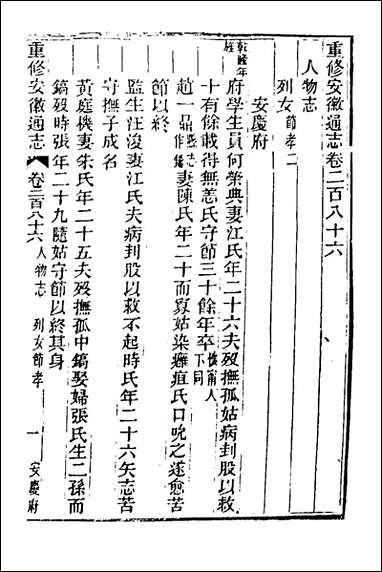 重修安徽通志卷二百八十六
人物志
列女節孝二
安慶府
乾隆年
府學生員何榮典妻江氏年二十六夫歿撫孤姑病刲股以救
十有餘載得無恙氏守節三十餘年卒懷甯人下同
趙一鼎妻陳氏年二十而寡姑染癰疽氏口吮之遂愈苦
節以終
監生汪浚妻江氏夫病刲股以救不起時氏年二十六矢志苦
守撫子成名
黃庭機妻朱氏年二十五夫歿撫孤中鎬娶婦張氏生二孫而
鎬歿時張年二十九隨姑守節以終其身
重修安徽通志 卷二百八十六 人物志 列女節孝 一 安慶府